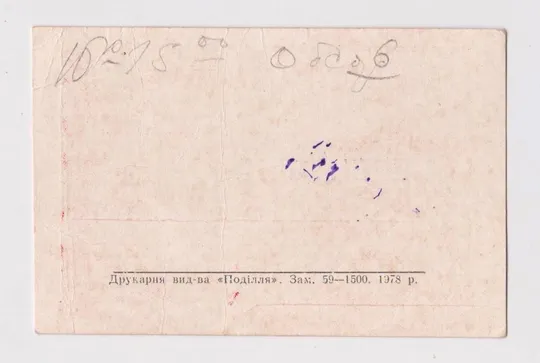 10⁰⁰ 15⁰⁰
Друкарня вид-ва «Поділля». Зам. 59—1500. 1978 р.